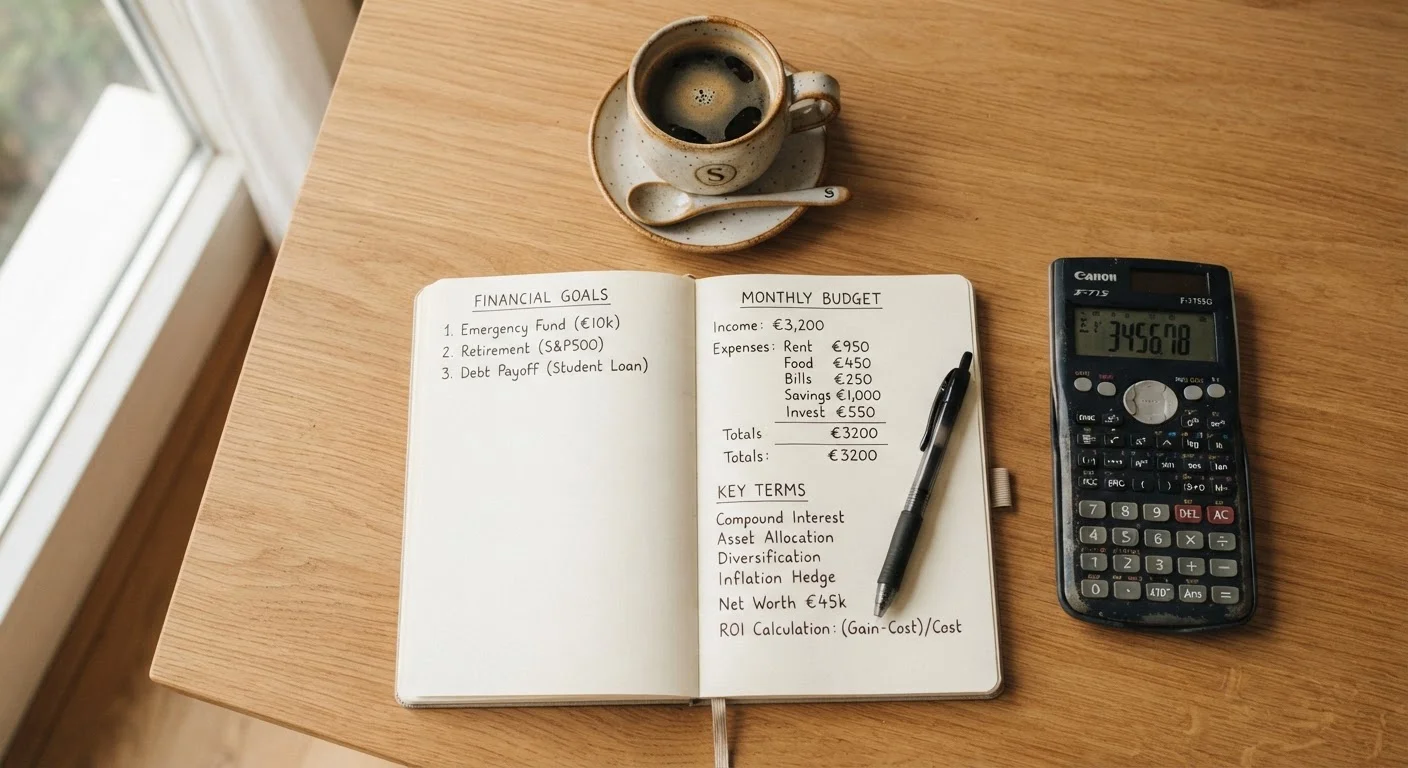 S
S
FINANCIAL GOALS
1. Emergency Fund (€10k)
2. Retirement (S&P500)
3. Debt Payoff (Student Loan)
MONTHLY BUDGET
Income: €3,200
Expenses: Rent €950
Food €450
Bills €250
Savings €1,000
Invest €550
Totals €3200
Totals: €3200
KEY TERMS
Compound Interest
Asset Allocation
Diversification
Inflation Hedge
Net Worth €45k
ROI Calculation: (Gain-Cost)/Cost
Canon
345678
7 8 9 DEL AC
4 5 6 × ÷
1 2 3 + −
0 . Ans =